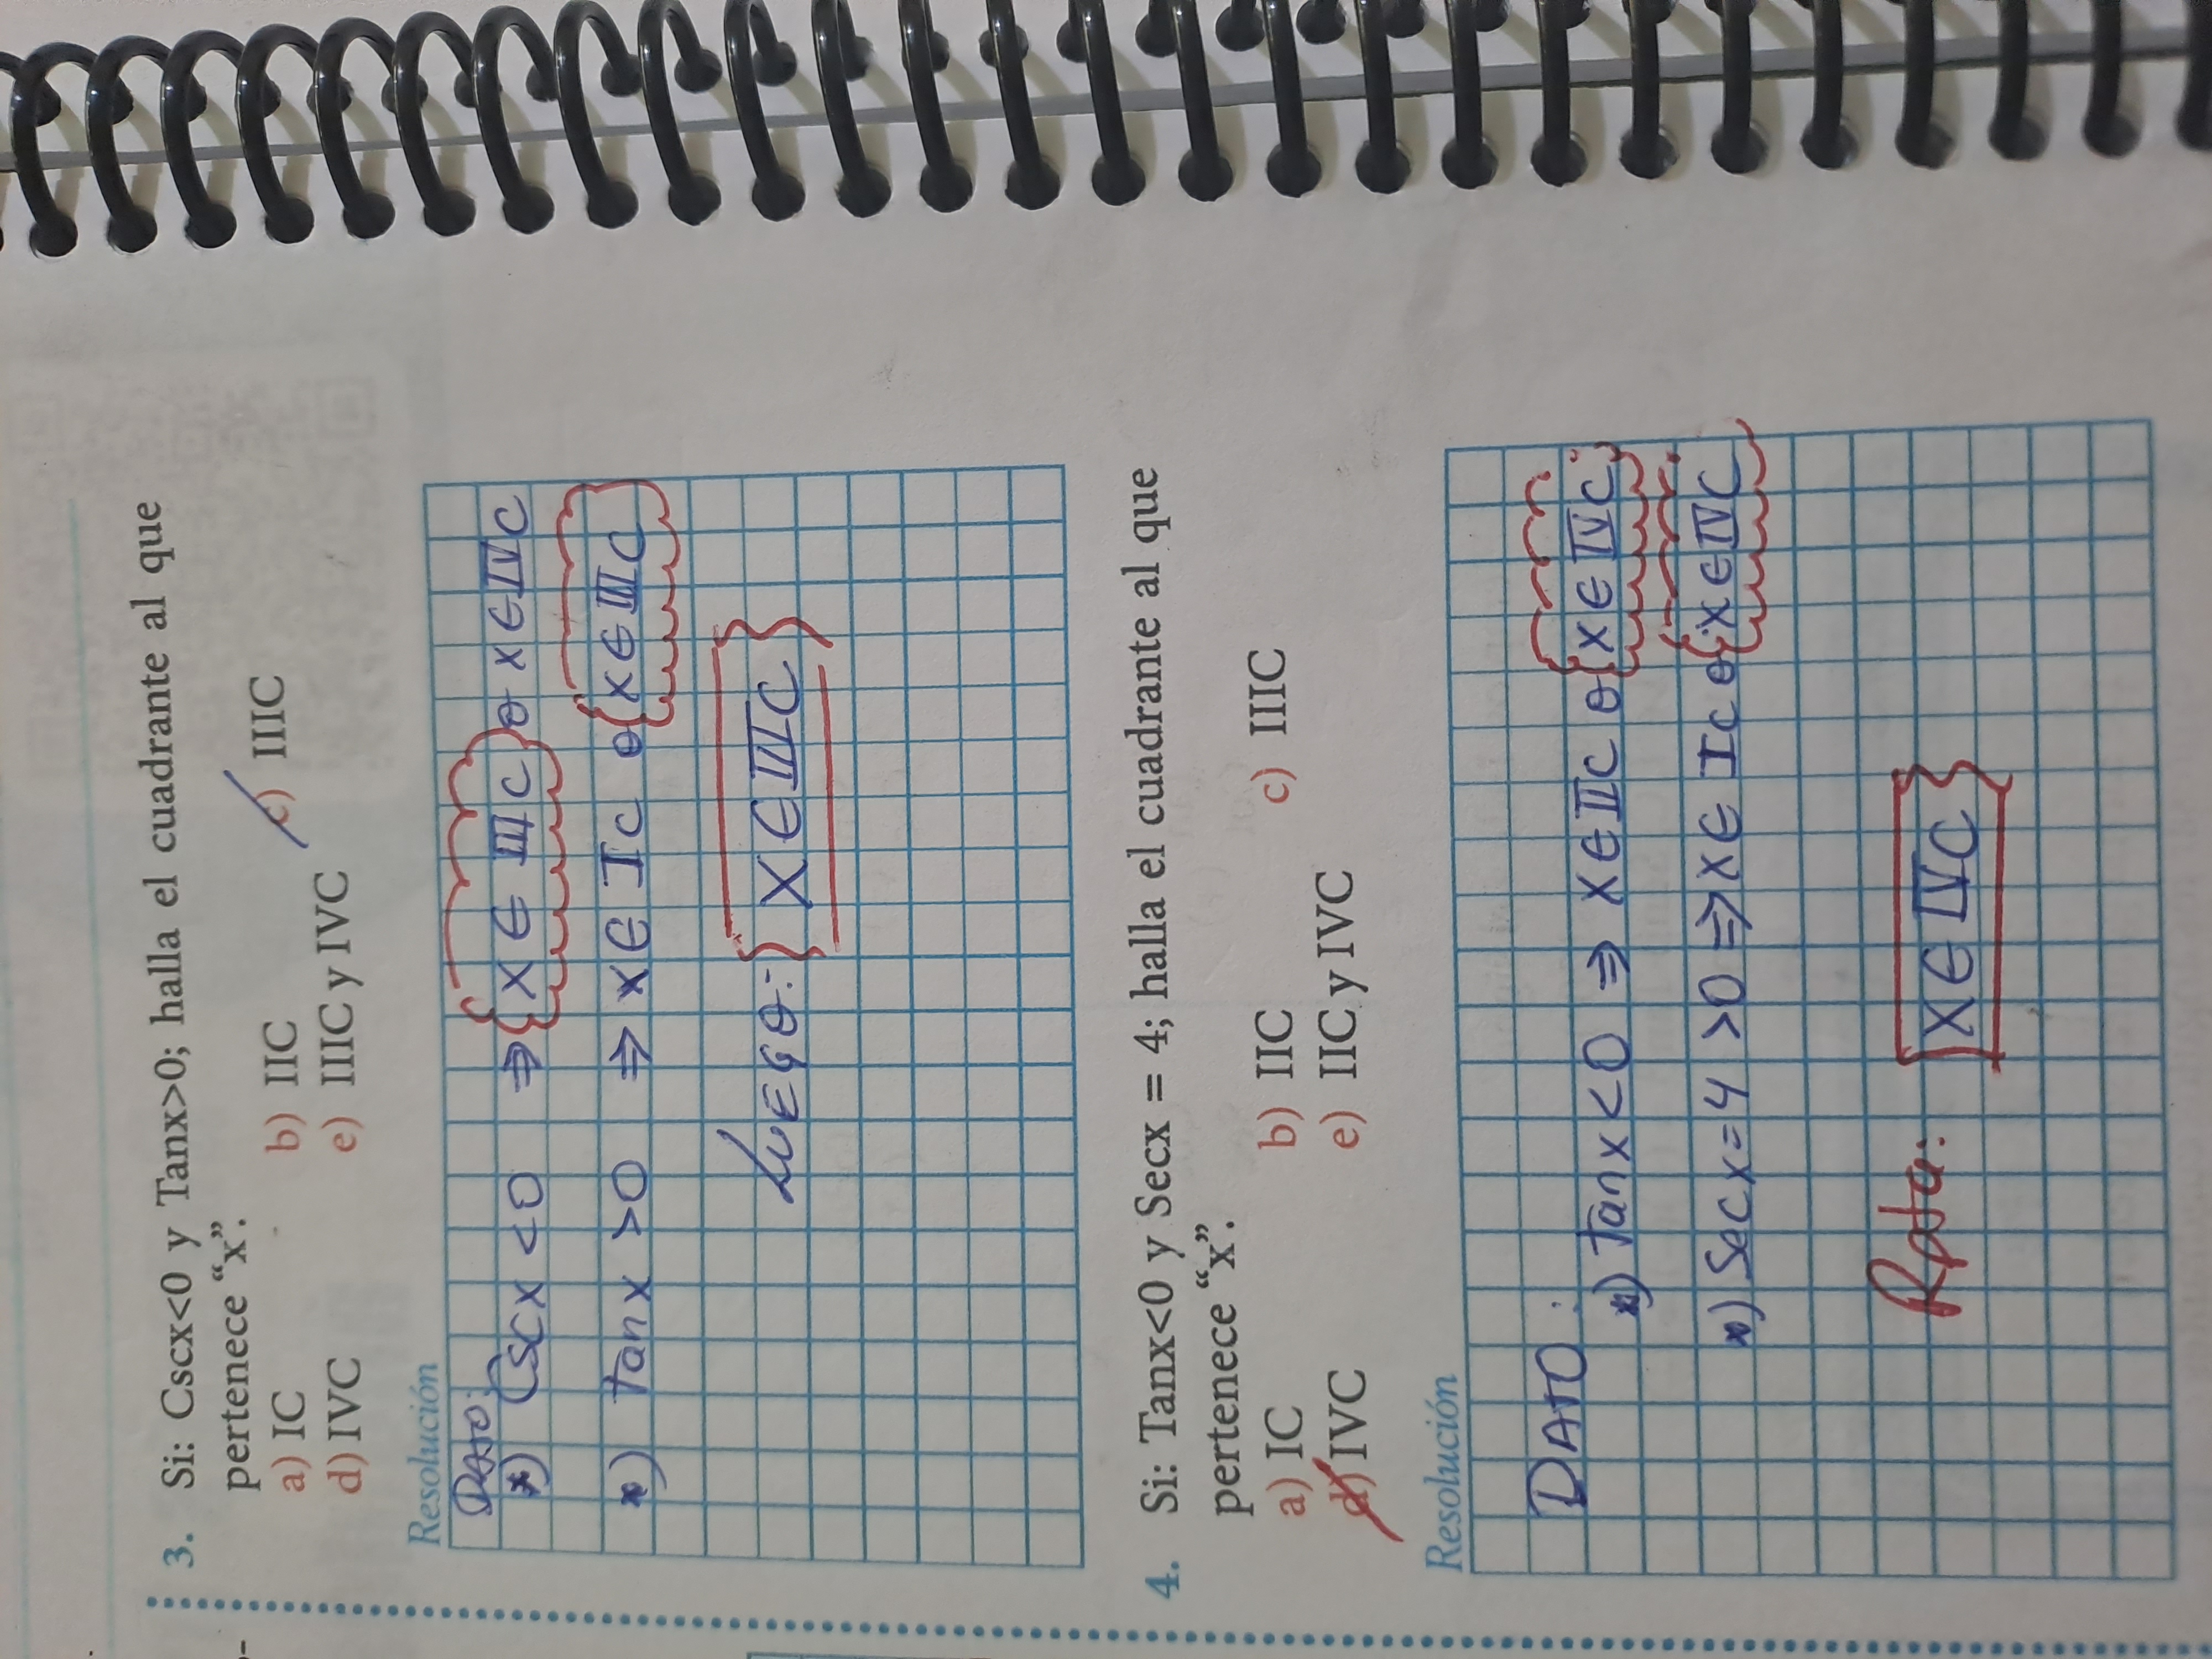 3. Si: Cscx<0 y Tanx>0; halla el cuadrante al que
pertenece “x”.
a) IC b) IIC c) IIIC
d) IVC e) IIIC y IVC
Resolución
DATO:
*) Cscx <0 ⇒ x ∈ III C o x ∈ IV C
*) Tanx >0 ⇒ x ∈ I C o x ∈ III C
LUEGO: x ∈ III C
4. Si: Tanx<0 y Secx = 4; halla el cuadrante al que
pertenece “x”.
a) IC b) IIC c) IIIC
d) IVC e) IIC y IVC
Resolución
DATO:
*) Tanx<0 ⇒ x ∈ II C o x ∈ IV C
*) Secx=4 >0 ⇒ x ∈ I C o x ∈ IV C
Rpta: x ∈ IV C